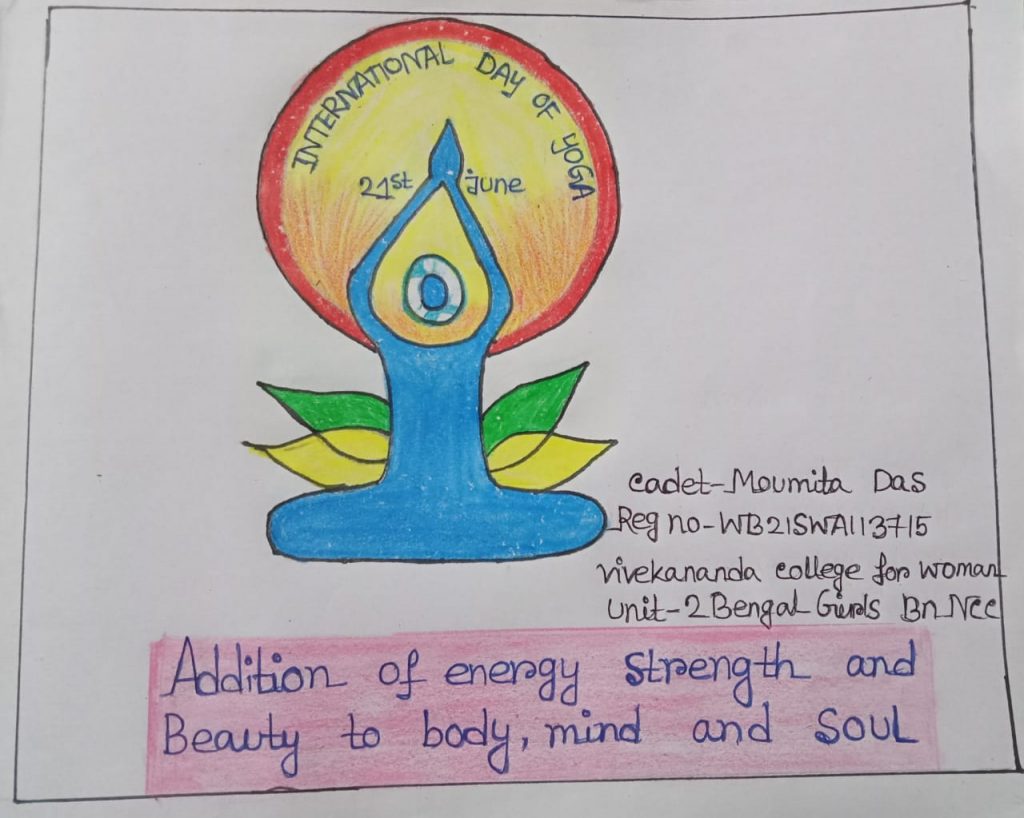 INTERNATIONAL DAY OF YOGA
21st June
cadet-Moumita Das
Reg no-WB21SWA113715
vivekananda college for woman
unit-2 Bengal Girls Bn NCC
Addition of energy strength and
Beauty to body, mind and SOUL